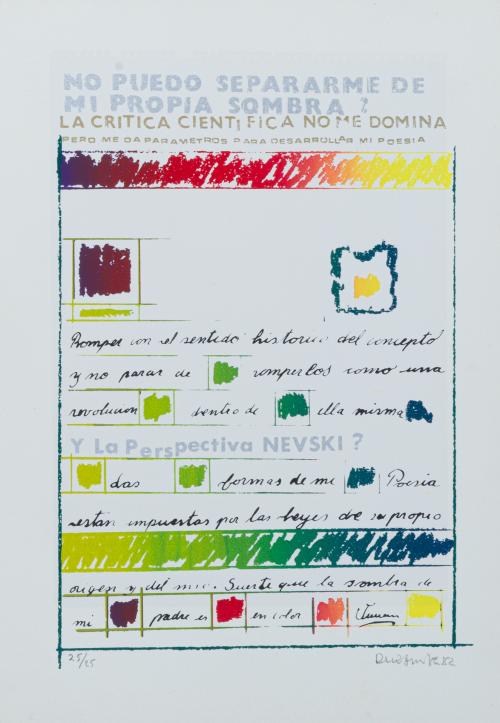 NO PUEDO SEPARARME DE
MI PROPIA SOMBRA ?
LA CRITICA CIENTIFICA NO ME DOMINA
PERO ME DA PARAMETROS PARA DESARROLLAR MI POESIA
Romper con el sentido historico del concepto
y no parar de romperlos como una
revolucion dentro de ella misma
Y La Perspectiva NEVSKI ?
das formas de mi Poesia
estan impuestas por las leyes de su propio
origen y del mio. Suerte que la sombra de
mi padre es en color
25/25
82